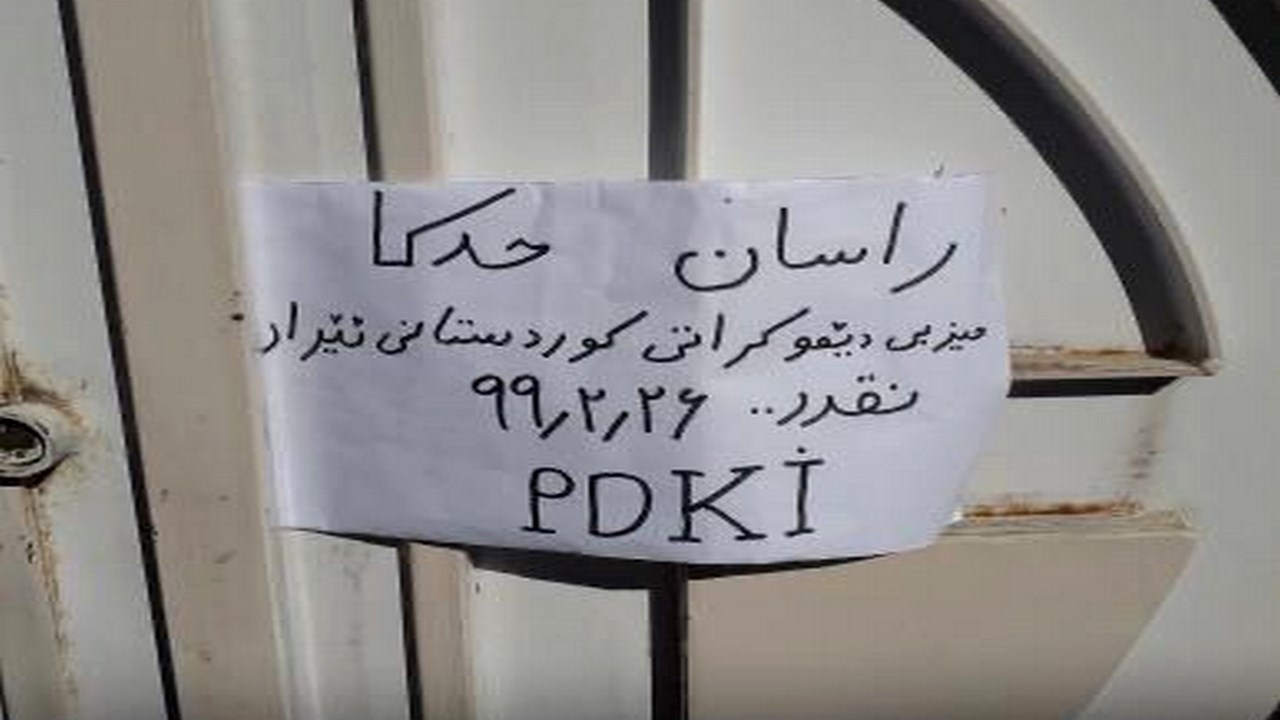 راسان حدکا
حیزبی دێموکراتی کوردستانی ئێران
نقدد.. ۹۹٫۲٫۲۶
PDKİ